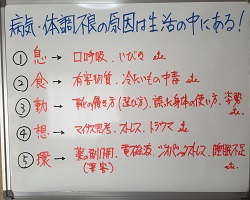 病気・体調不良の原因は生活の中にある!
① 息 → 口呼吸、いびき etc.
② 食 → 有害物質、冷たいもの中毒 etc.
③ 動 → 靴の履き方(選び方)、誤った身体の使い方、姿勢 etc.
④ 想 → マイナス思考、ストレス、トラウマ etc.
⑤ 環 → 薬剤、電磁波、ジオパシックストレス、睡眠不足 etc.
(薬害)